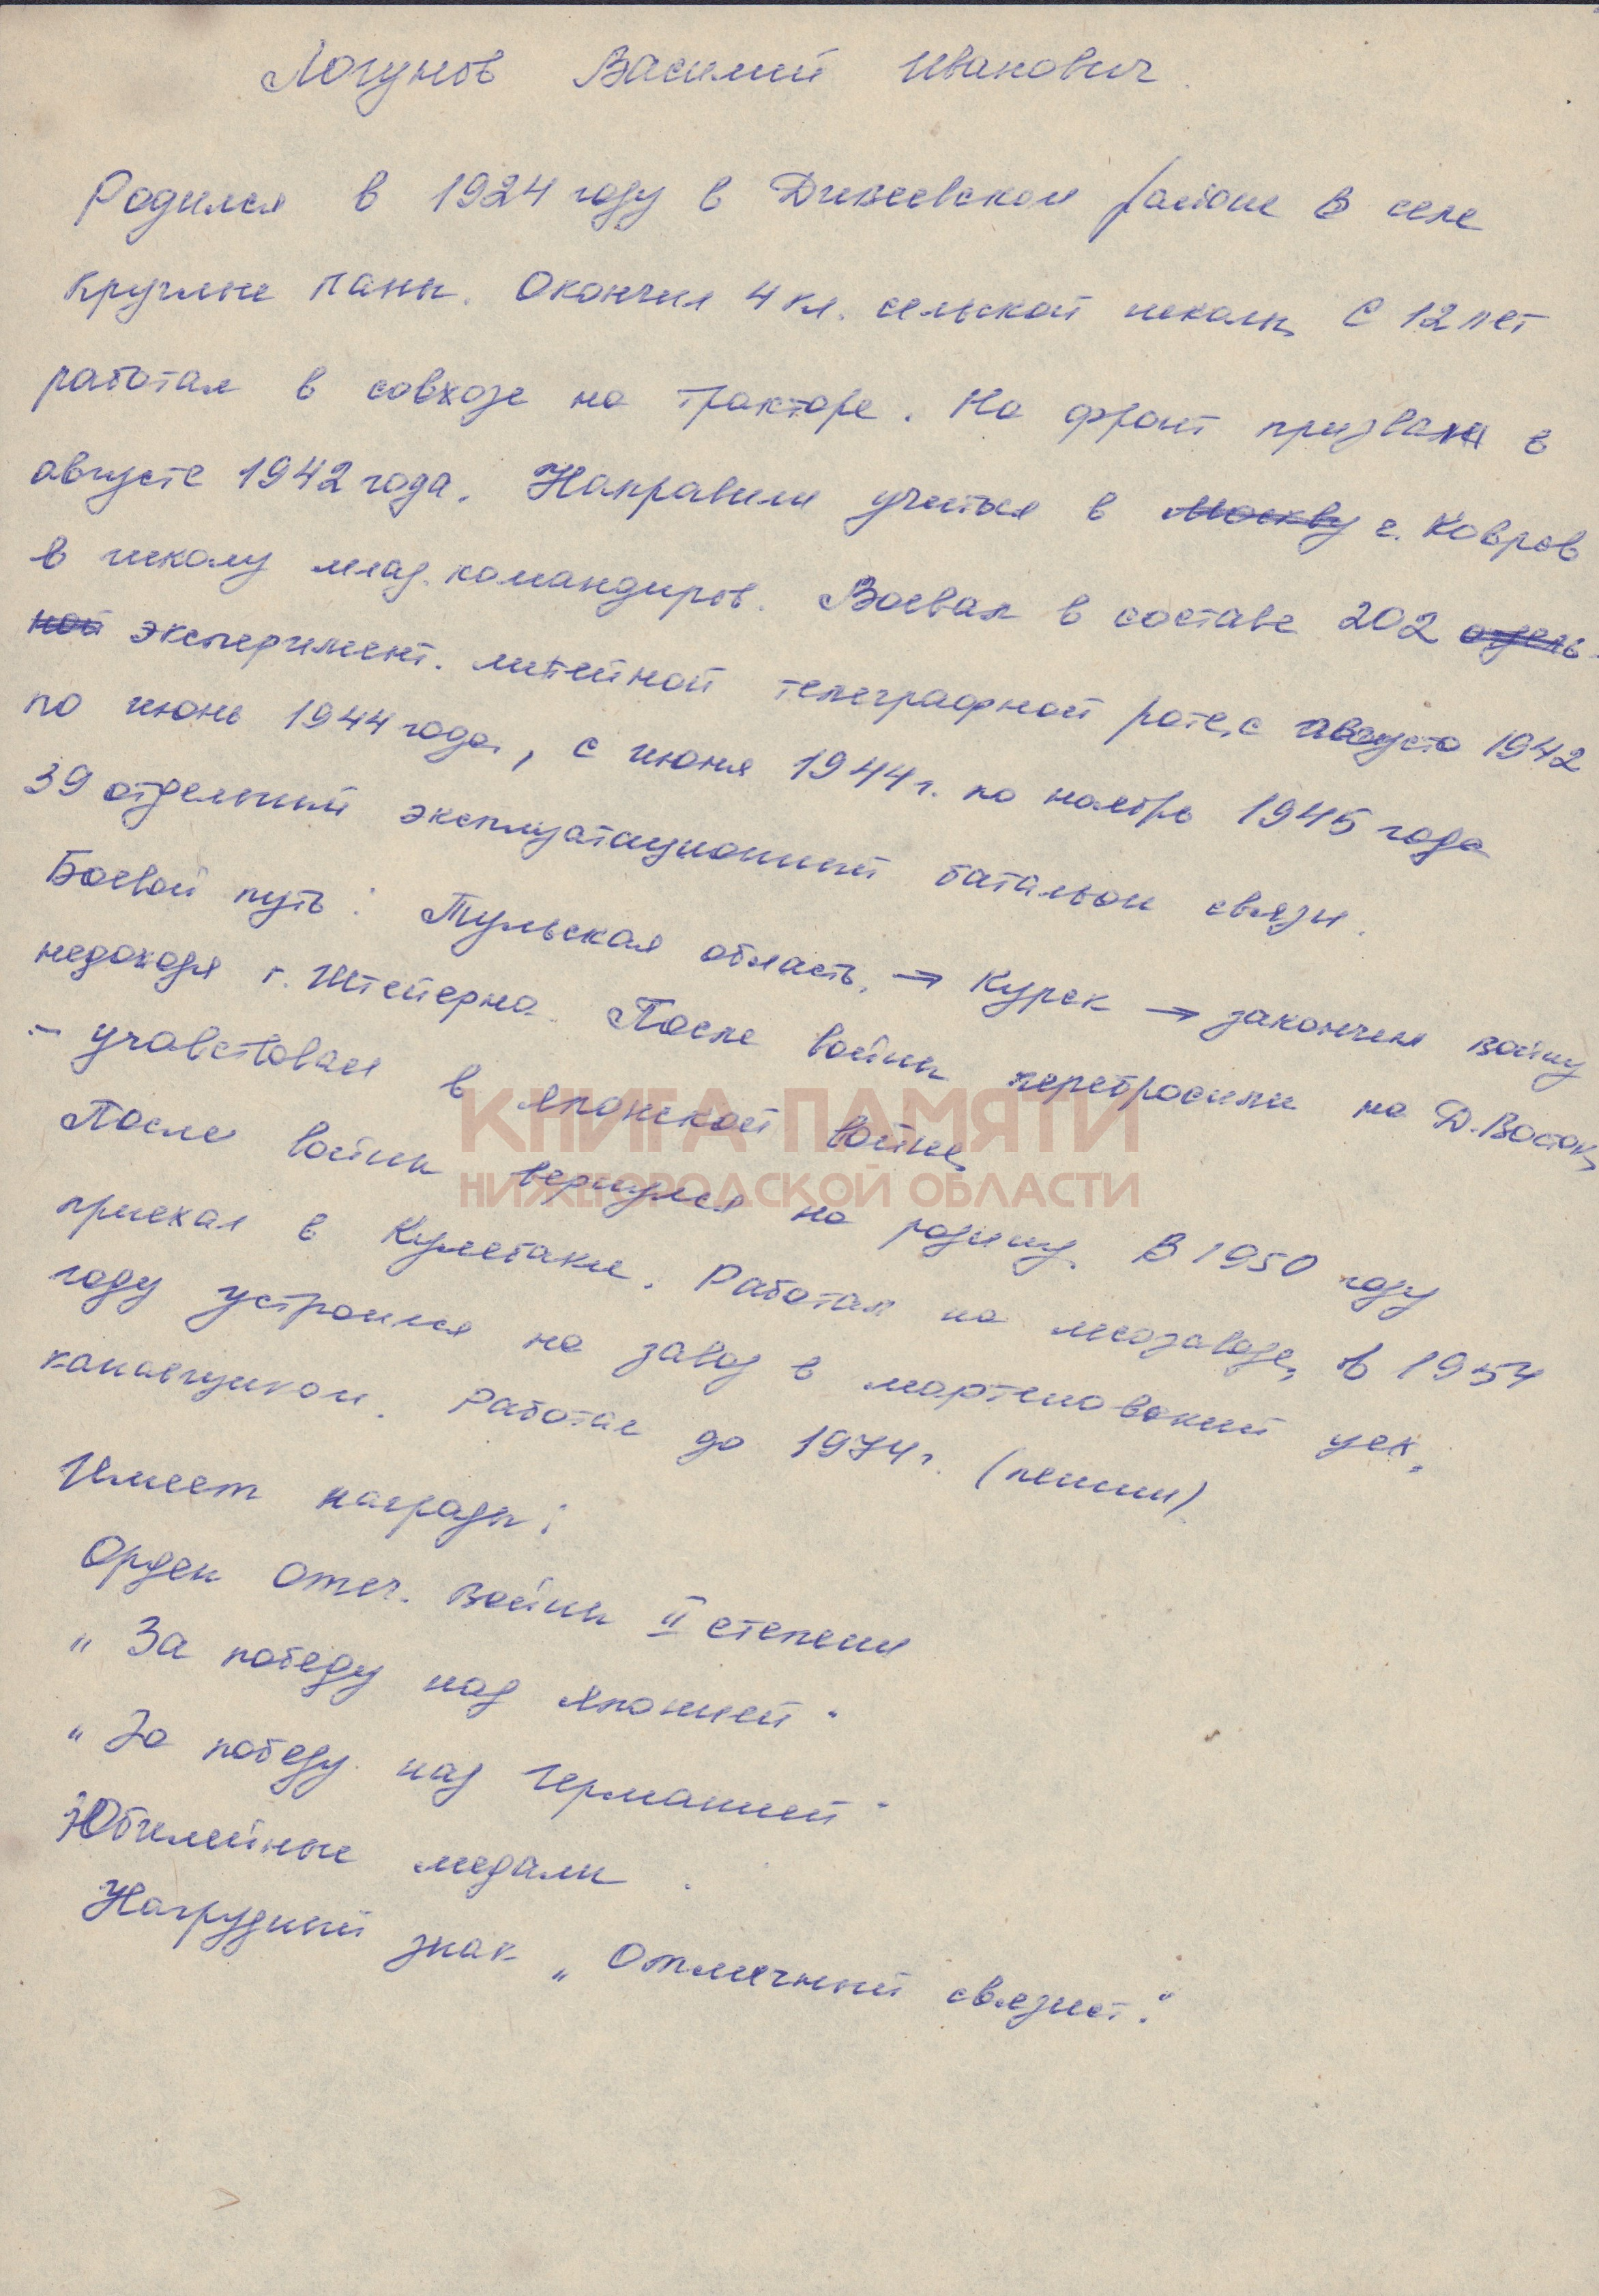 Логунов Василий Иванович
Родился в 1924 году в Дивеевском районе в селе
Круглые Паны. Окончил 4 кл. сельской школы. С 12 лет
работал в совхозе на тракторе. На фронт призвали в
августе 1942 года. Направили учиться в Москву г. Ковров
в школу млад. командиров. Воевал в составе 202 отдель-
ной эксперимент. линейной телеграфной роте, с августа 1942
по июнь 1944 года, с июня 1944 г. по ноябрь 1945 года
39 отдельный эксплуатационный батальон связи.
Боевой путь: Тульская область, → Курск → закончил войну
недоходя г. Штейерна. После войны перебросили на Д. Восток,
– учавствовал в японской войне,
После войны вернулся на родину. В 1950 году
приехал в Кулебаки. Работал на лесозаводе, в 1954
году устроился на завод в мартеновский цех,
канавщиком. Работал до 1974 г. (пенсии).
Имеет награды:
Орден Отеч. войны II степени
„За победу над Японией"
„За победу над Германией"
Юбилейные медали.
Нагрудный знак „Отличный связист."
КНИГА ПАМЯТИ
НИЖЕГОРОДСКОЙ ОБЛАСТИ